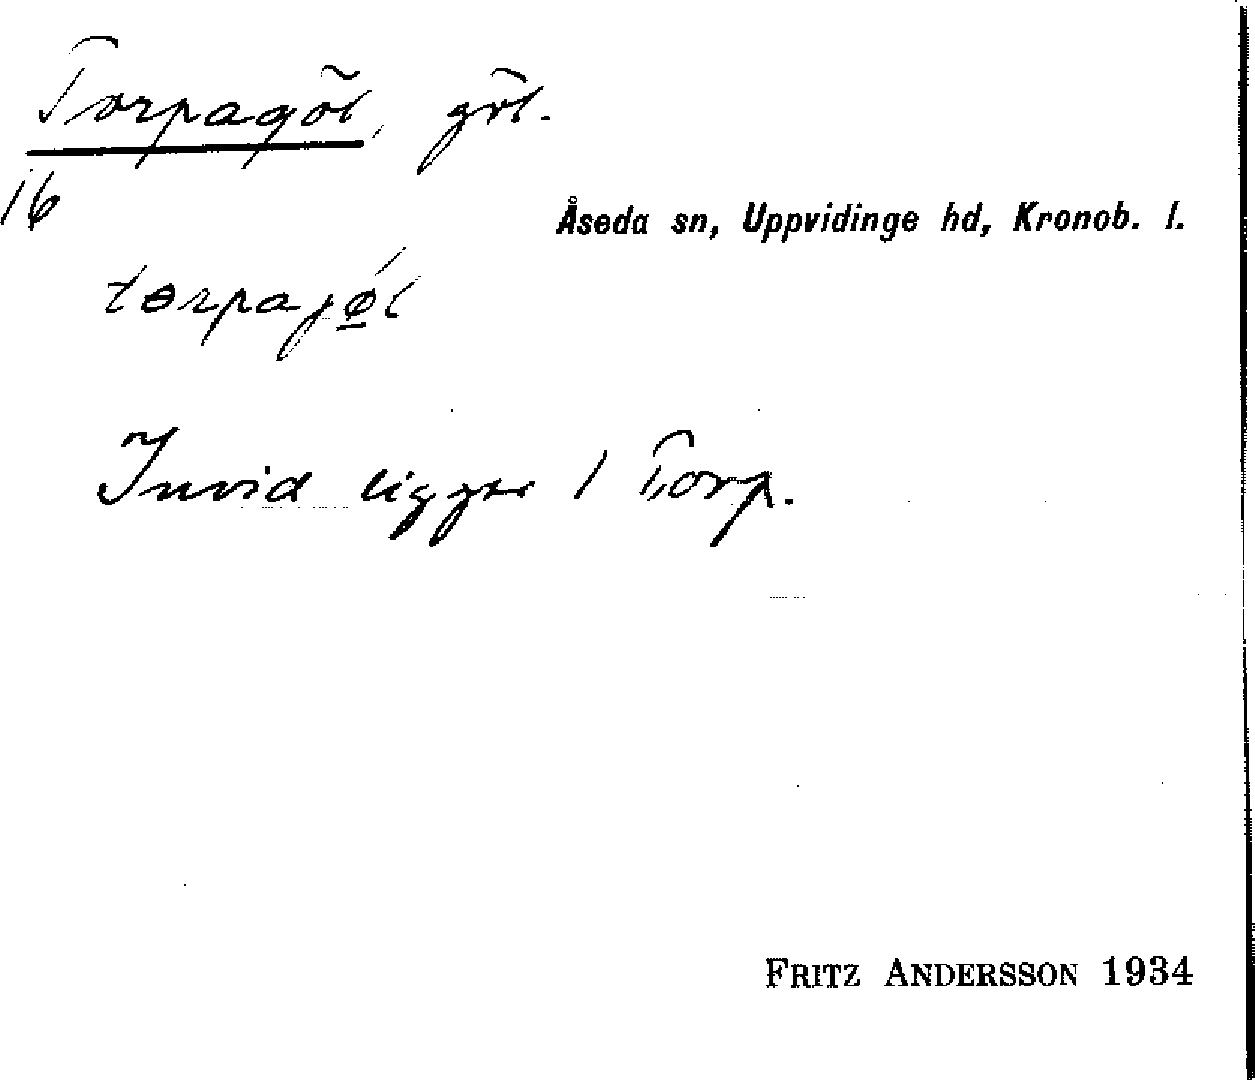 Torpagöl, göl.
16
Åseda sn, Uppvidinge hd, Kronob. l.
tɵrpajǿ̲l
Invid ligger 1 Torp.
FRITZ ANDERSSON 1934